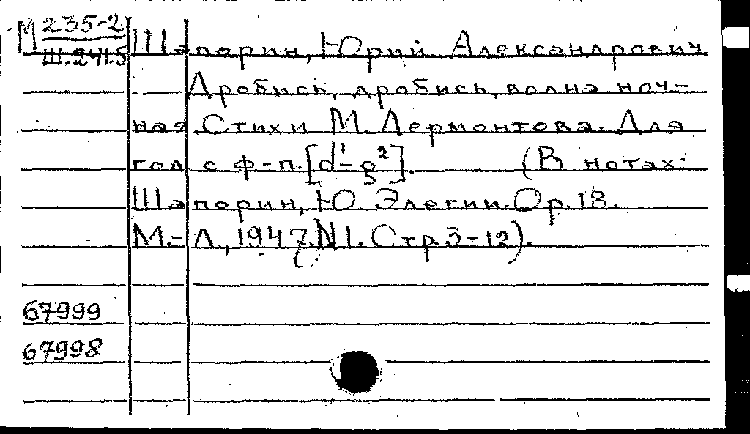 М 235-2
Ш.241.5
Шапорин, Юрий Александрович
Дробись, дробись, волна ноч-
ная. Стихи М. Лермонтова. Для
гол. с ф-п. [d¹-g²]. (В нотах:
Шапорин, Ю. Элегии. Ор. 18.
М.-Л., 1947. N1. Стр. 3-12).
67999
67998